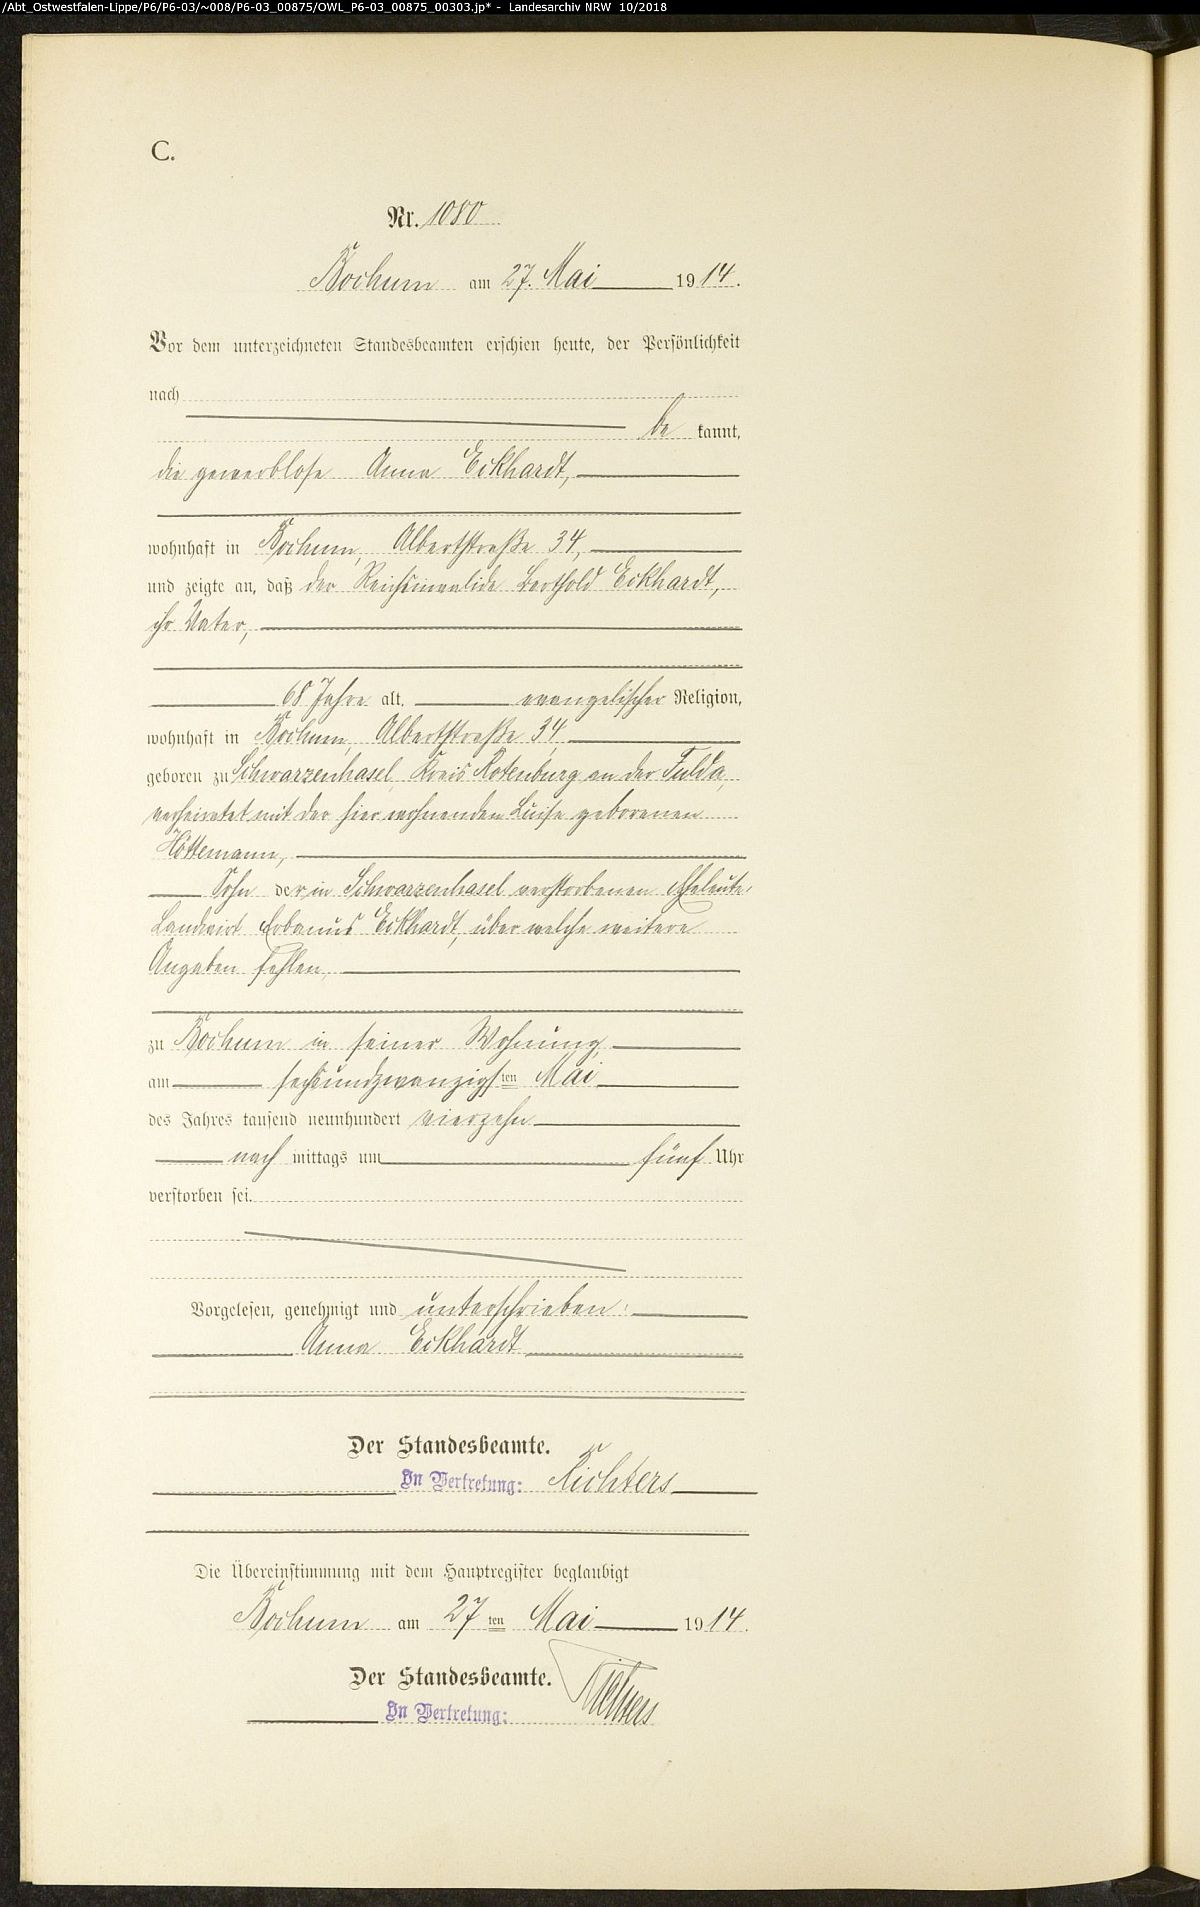 /Abt_Ostwestfalen-Lippe/P6/P6-03/~008/P6-03_00875/OWL_P6-03_00875_00303.jp* - Landesarchiv NRW 10/2018
C.
Nr. 1080
Bochum am 27. Mai 1914.
Vor dem unterzeichneten Standesbeamten erschien heute, der Persönlichkeit
nach
be kannt,
die gewerblose Anna Eckhardt,
wohnhaft in Bochum, Albertstraße 34,
und zeigte an, daß der Reichsinvalide Berthold Eckhardt,
ihr Vater,
68 Jahre alt, evangelischer Religion,
wohnhaft in Bochum, Albertstraße 34,
geboren zu Schwarzenhasel, Kreis Rotenburg an der Fulda,
verheiratet mit der hier wohnenden Luise geborenen
Höttemann,
Sohn der in Schwarzenhasel verstorbenen Eheleute,
Landwirt Urbanus Eckhardt, über welche weitere
Angaben fehlen,
zu Bochum in seiner Wohnung,
am sechsundzwanzigsten Mai
des Jahres tausend neunhundert vierzehn
nach mittags um fünf Uhr
verstorben sei.
Vorgelesen, genehmigt und unterschrieben:
Anna Eckhardt
Der Standesbeamte.
In Vertretung: Richters
Die Übereinstimmung mit dem Hauptregister beglaubigt
Bochum am 27ten Mai 1914.
Der Standesbeamte.
In Vertretung: